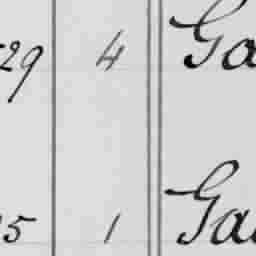 29 4 Ga
5 1 Ga